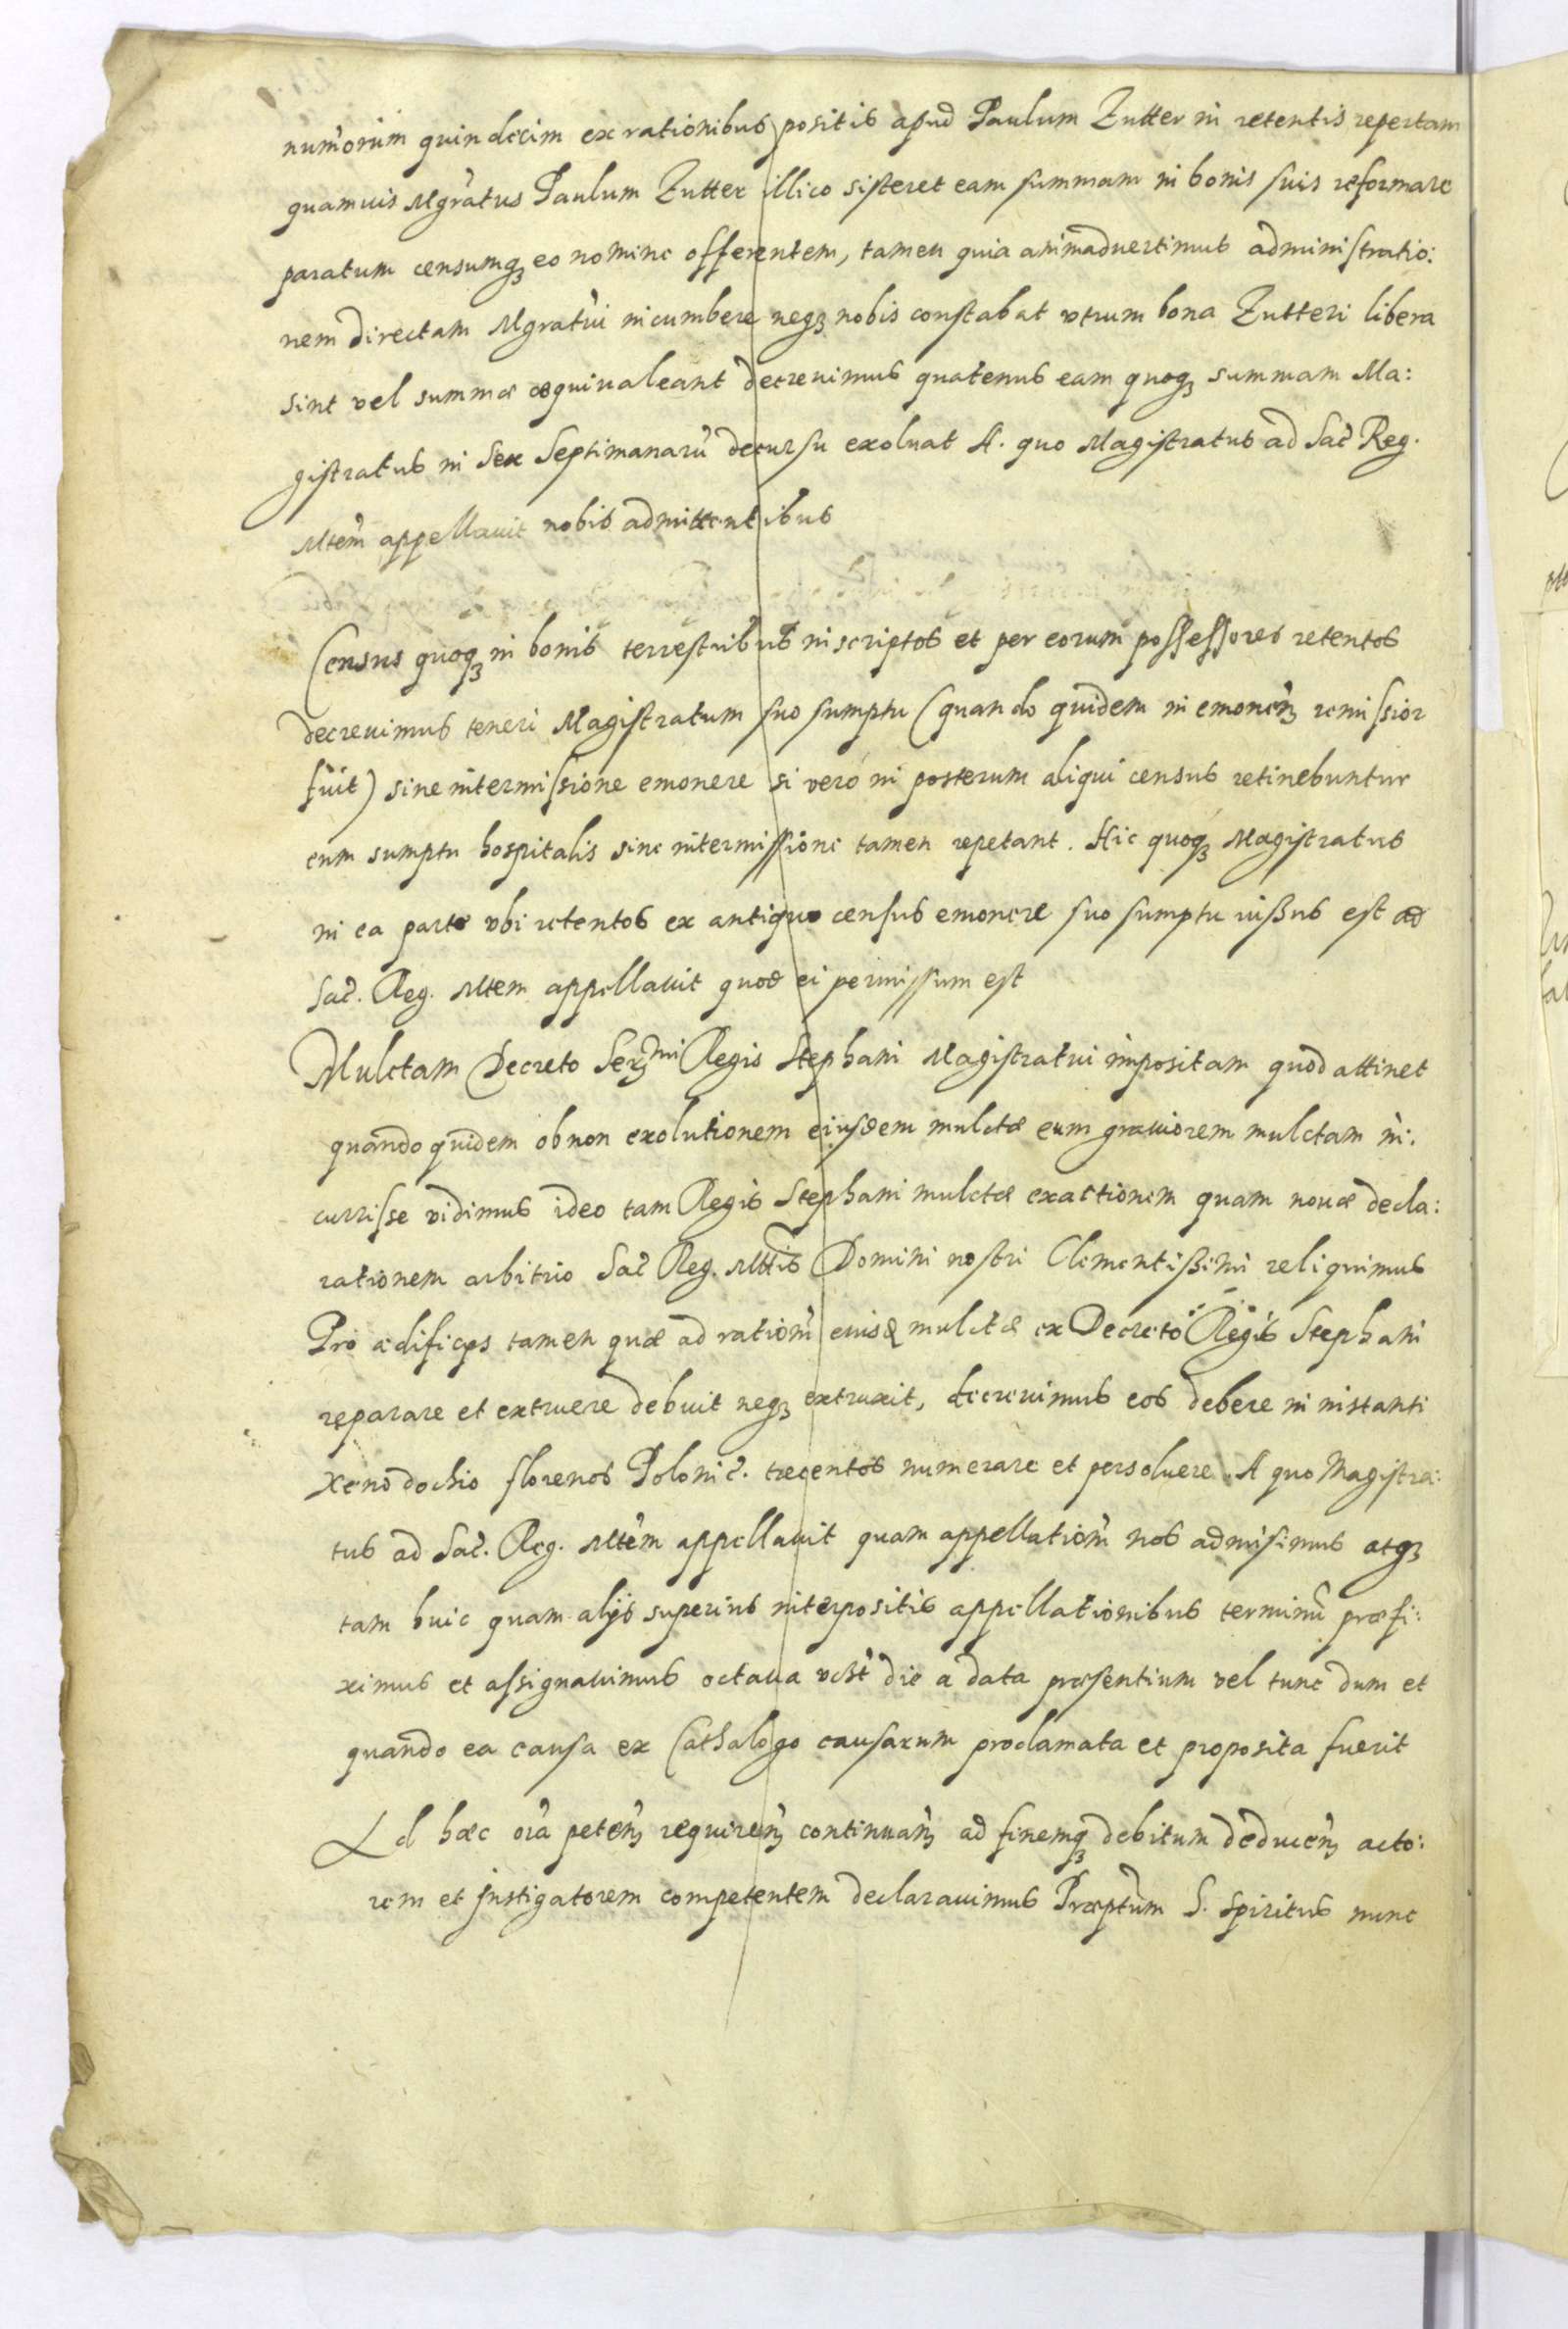 numorum quindecim ex rationibus positis apud Paulum Zutter in retentis repertam
quamuis Mgratus Paulum Zutter illico sisteret eam summam in bonis suis reformare
paratum censumq; eo nomine offerentem, tamen quia animaduertimus administratio:
nem directam Mgratui incumbere neq; nobis constabat vtrum bona Zutteri libera
sint vel summæ æquiualeant decreuimus quatenus eam quoq; summam Ma:
gistratus in sex Septimanaru decursu exoluat A. quo Magistratus ad Sac Reg.
Mtem appellauit nobis admittentibus
Census quoq; in bonis terrestribus inscriptos et per eorum possessores retentos
decreuimus teneri Magistratum suo sumptu (quando quidem in emonen; remissior
fuit) sine intermissione emonere si vero in posterum aliqui census retinebuntur
eum sumptu hospitalis sine intermissione tamen repetant. Hic quoq; Magistratus
in ea parte vbi retentos ex antiquo census emonere suo sumptu iußus est ad
Sac. Reg. Mtem appellauit quod ei permissum est
Mulctam Decreto Ser;mi Regis Stephani Magistratui impositam quod attinet
quando quidem ob non exolutionem eiusdem mulctæ eum grauiorem mulctam in:
currisse vidimus ideo tam Regis Stephani mulctæ exactionem quam nouæ decla:
rationem arbitrio Sac Reg. Mttis Domini nostri Clementißimi reliquimus
Pro ædificijs tamen quæ ad rationem eiusd mulctæ ex Decreto Regis Stephani
reparare et extruere debuit neq; extruxit, decreuimus eos debere in instanti
Xenodochio florenos Polonic. trecentos numerare et persoluere. A quo Magistra:
tus ad Sac. Reg. Mtem appellauit quam appellationem nos admisimus atq;
tam huic quam alijs superius interpositis appellationibus terminu præfi:
ximus et assignauimus octaua vcst die a data præsentium vel tunc dum et
quando ea causa ex Cathalogo causarum proclamata et proposita fuerit
Ad hæc oia peten; requiren; continuan; ad finemq; debitum deducen; acto:
rem et jnstigatorem competentem declarauimus Præptum S. Spiritus nunc